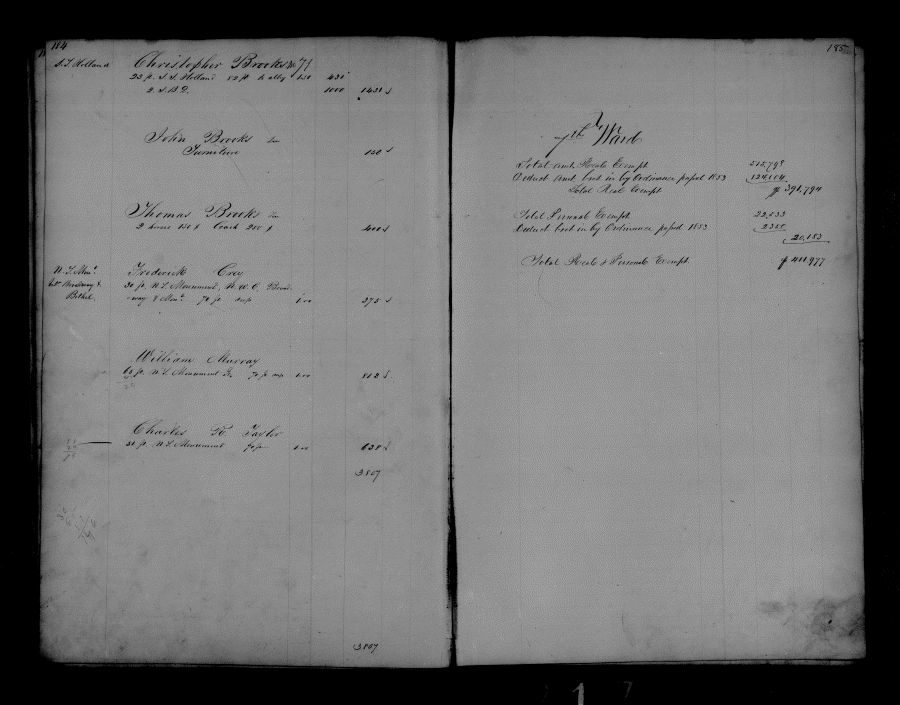 184
S.S Holland Christopher Brooks No 71
23 ft. S.S. Holland 82 ft to alley 1.50 431
2. S. B. D. 1000 1431
John Brooks
Furniture 150
Thomas Brooks
2 horses 150 $ Coach 250 $ 400
N.S. Mont.
bet. Broadway &
Bethel.
Frederick Crey
30 ft. N.S. Monument, N.W.C. Broad-
-way & Mont. 70 ft. deep 1.00 375
William Murray
65 ft. N.S. Monument St. 70 ft deep 1.00 813
Charles R Taylor
N.S. Monument 70 ft 1.00 638
3807
3807
185
7th Ward
Total amt. Real Exempt. 515,798
Deduct amt brot in by Ordinance passed 1853 124,004
Total Real Exempt $ 391,794
Total Personal Exempt. 22,533
Deduct brot in by Ordinance passed 1853 2350
20,183
Total Real & Personal Exempt. $ 411,977